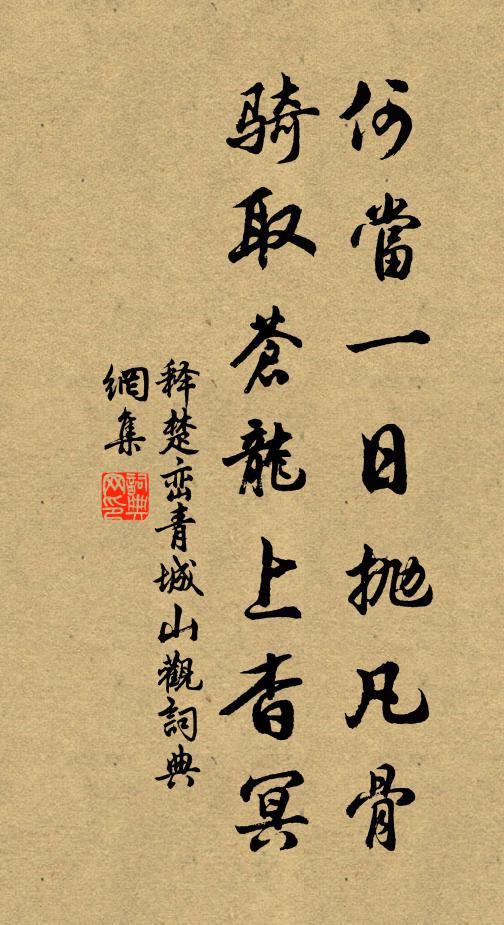 何當一日抛凡骨
騎取蒼龍上杳冥
释楚峦青城山觀詞典
網集
詞典
网印